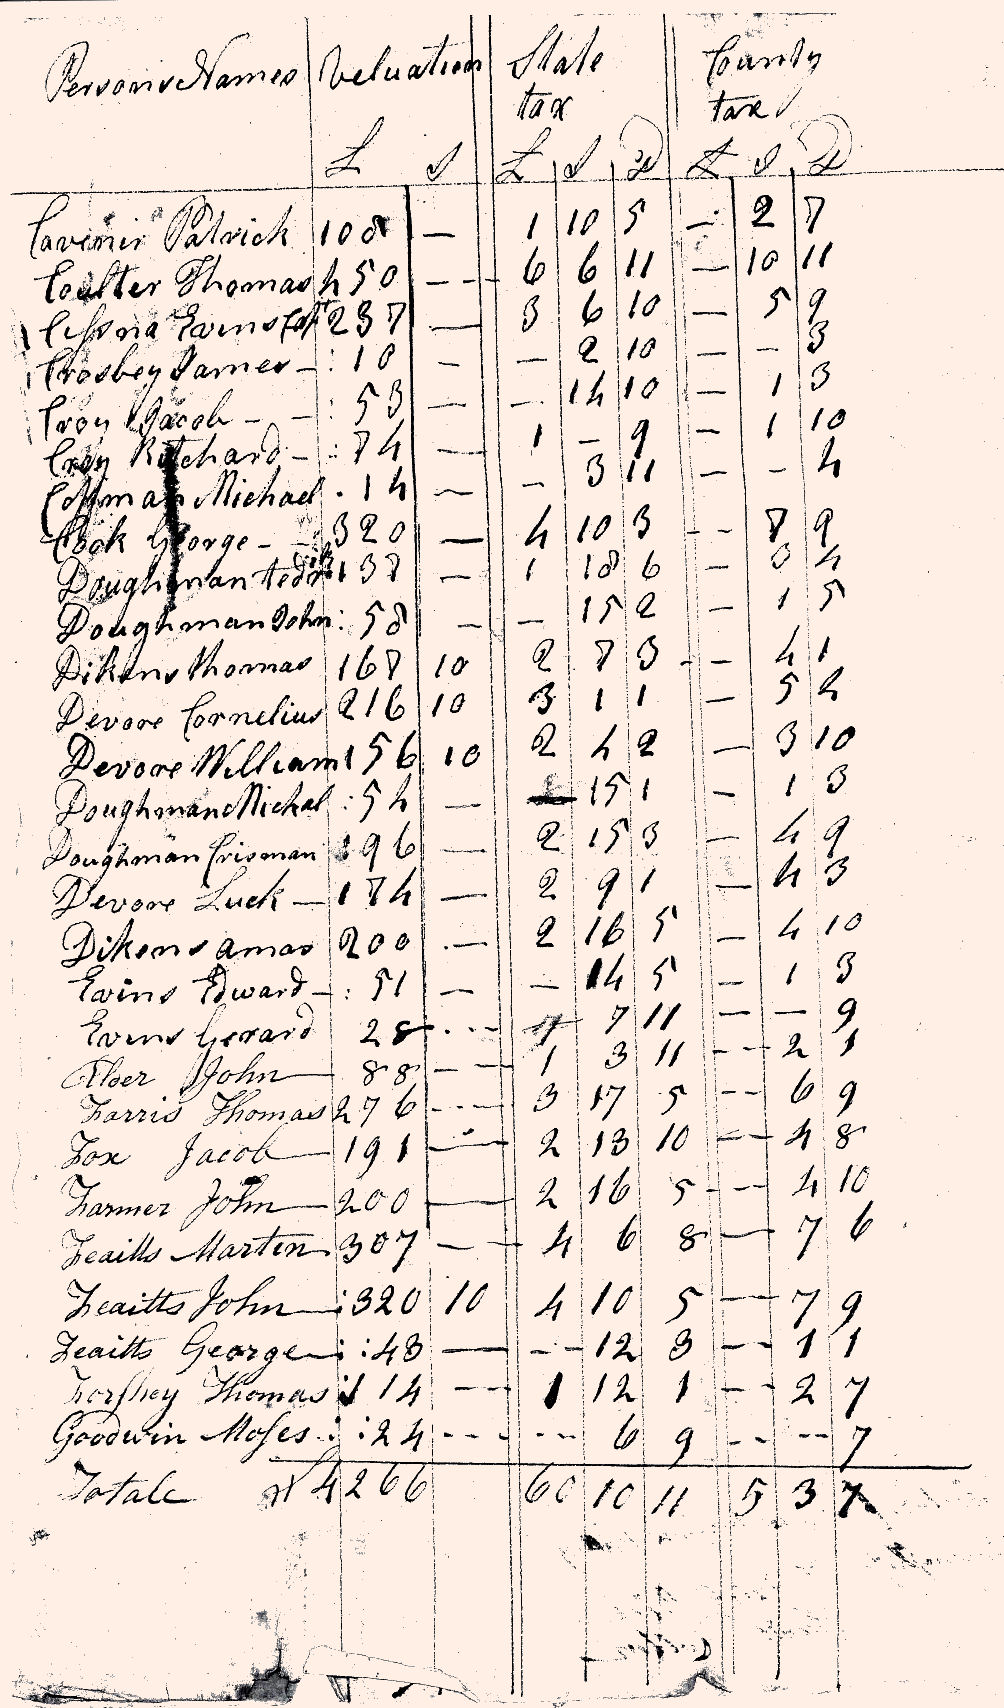 Persons Names Veluation State tax County tax
£ S £ S D £ S D
Cavenir Patrick 108 — 1 10 5 — 2 7
Coulter Thomas 450 — 6 6 11 — 10 11
Cessna Evins 237 — 3 6 10 — 5 9
Crosbey James — : 10 — — 2 10 — — 3
Croy Jacob — — : 53 — — 14 10 — 1 3
Croy Ritchard — : 74 — 1 — 9 — 1 10
Coffman Michael . 14 — — 3 11 — — 4
Cook George — 320 — 4 10 3 — 7 9
Doughman 137 — 1 18 6 — 3 4
Doughman John : 58 — — 15 2 — 1 5
Dikens thomas 167 10 2 7 3 — 4 1
Devore Cornelius 216 10 3 1 1 5 2
Devore William 156 10 2 4 2 — 3 10
Doughman Michal : 54 — — 15 1 — 1 3
Doughman Crisman 196 — 2 15 3 — 4 9
Devore Luck — 174 — 2 9 1 — 4 3
Dikens amas 200 — 2 16 5 — 4 10
Evins Edward — : 51 — — 14 5 — 1 3
Evins Gerard 28 — 7 11 — — 9
John — 88 — 1 3 11 — 2 1
Farris Thomas 276 — 3 17 5 — 6 9
Fox Jacob — 191 — 2 13 10 — 4 8
Farmer John — 200 — 2 16 5 — 4 10
Feaitts Marten 307 — 4 6 8 — 7 6
Feaitts John — : 320 10 4 10 5 — 7 9
Feaitts George — : 43 — — 12 3 — 1 1
Forshey Thomas 114 — 1 12 1 — 2 7
Goodwin Moses : : 24 — — 6 9 — — 7
Totale 4266 60 10 11 5 3 7